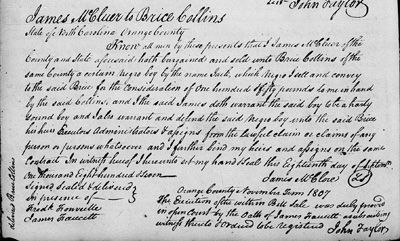 John Taylor
James McCluer to Brice Collins
State of North Carolina Orange County
Know all men by these presents that I James McCluer of the
County and State aforesaid hath bargained and sold unto Brice Collins of the
same County a certain negro boy by the name Jack, which Negro I sell and convey
to the said Brice for the Consideration of One hundred & fifty pounds to me in hand
by the said Collins, and I the said James doth warrant the said boy to be a hearty
sound boy and I also warrant and defend the said Negro boy unto the said Brice
his heirs Executors Administrators & assigns from the lawful claim or claims of any
person or persons whatsoever and I further bind my heirs and assigns on the same
Contract In witness whereof I hereunto set my hand & Seal this Eighteenth day of
One thousand Eight hundred & Seven
James McClore
Signed Seal'd & delivered
in presence of
James Faucett
Orange County November Term 1807
The Execution of the within Bill Sale was duly proved
in open Court by the Oath of James Faucett a subscribing
witness thereto & ordered to be registered
John Taylor